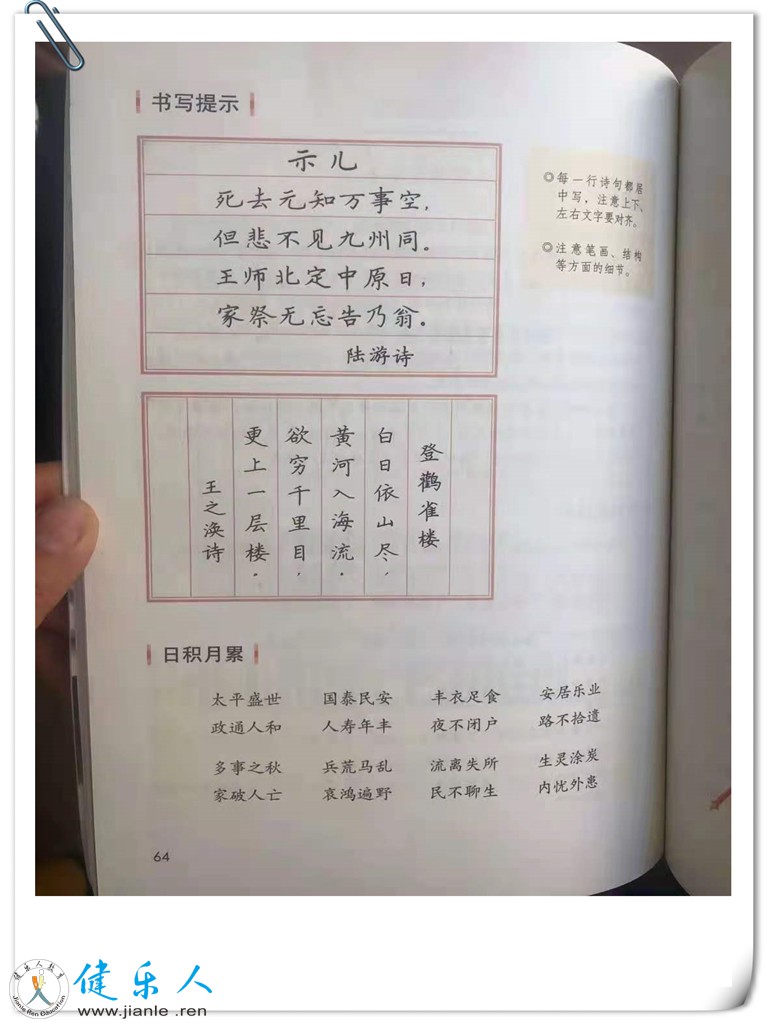 书写提示
示儿
死去元知万事空,
但悲不见九州同。
王师北定中原日,
家祭无忘告乃翁。
陆游诗
◎每一行诗句都居
中写,注意上下、
左右文字要对齐。
◎注意笔画、结构
等方面的细节。
登鹳雀楼
白日依山尽,
黄河入海流。
欲穷千里目,
更上一层楼。
王之涣诗
日积月累
太平盛世 国泰民安 丰衣足食 安居乐业
政通人和 人寿年丰 夜不闭户 路不拾遗
多事之秋 兵荒马乱 流离失所 生灵涂炭
家破人亡 哀鸿遍野 民不聊生 内忧外患
64
健乐人教育
Jianle Ren Education
健乐人
www.jianle .ren